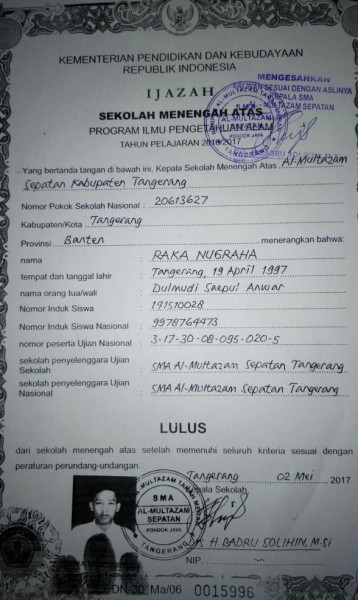 KEMENTERIAN PENDIDIKAN DAN KEBUDAYAAN
REPUBLIK INDONESIA
IJAZAH
SEKOLAH MENENGAH ATAS
PROGRAM ILMU PENGETAHUAN ALAM
TAHUN PELAJARAN 2016/2017
MENGESAHKAN
SESUAI DENGAN ASLINYA
KEPALA SMA
AL-MULTAZAM SEPATAN
Yang bertanda tangan di bawah ini, Kepala Sekolah Menengah Atas Al-Multazam
Sepatan Kabupaten Tangerang
Nomor Pokok Sekolah Nasional : 20613627
Kabupaten/Kota : Tangerang
Provinsi Banten menerangkan bahwa:
nama : RAKA NUGRAHA
tempat dan tanggal lahir : Tangerang, 19 April 1997
nama orang tua/wali : Dulmudi Saepul Anwar
Nomor Induk Siswa : 141510028
Nomor Induk Siswa Nasional : 9978764473
nomor peserta Ujian Nasional : 3-17-30-08-095-020-5
sekolah penyelenggara Ujian Sekolah : SMA Al-Multazam Sepatan Tangerang
sekolah penyelenggara Ujian Nasional : SMA Al-Multazam Sepatan Tangerang
LULUS
dari sekolah menengah atas setelah memenuhi seluruh kriteria sesuai dengan
peraturan perundang-undangan.
Tangerang 02 Mei 2017
Kepala Sekolah,
SMA
AL-MULTAZAM
SEPATAN
PONDOK JAYA
TANGERANG
H. BADRU SOLIHIN, M.Si
NIP.
DN-30 Ma/06 0015996